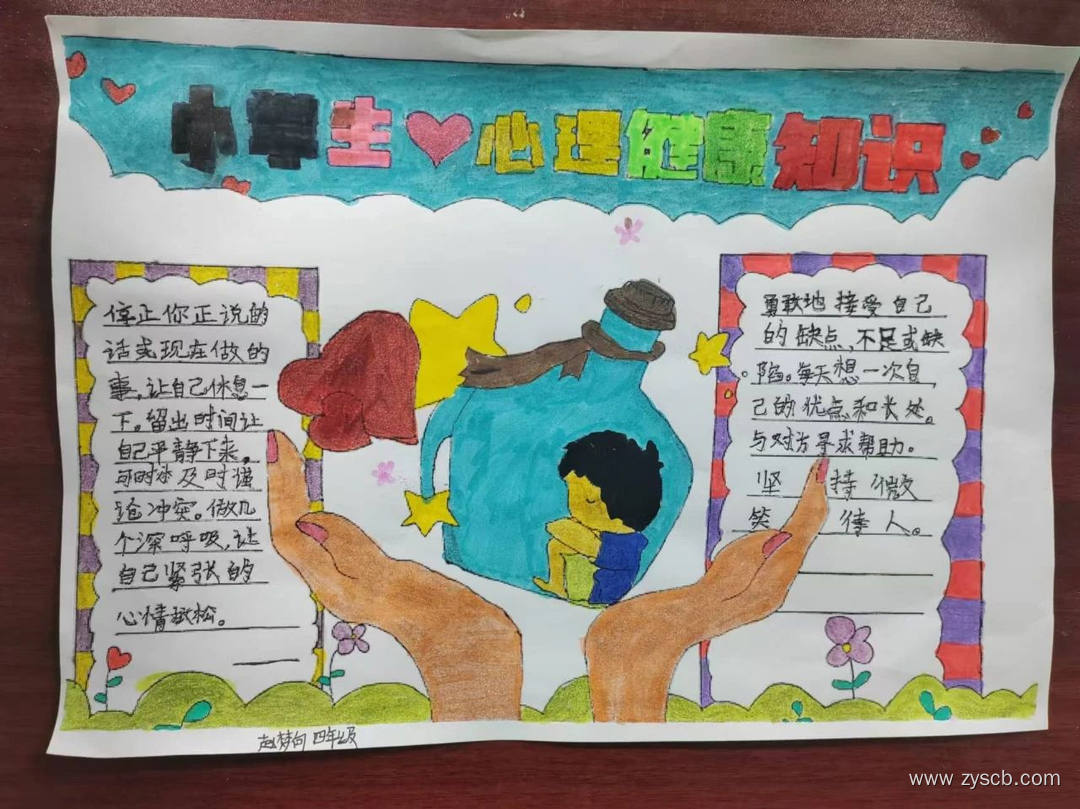 小学生心理健康知识
停止你正说的
话或现在做的
事,让自己休息一
下。留出时间让
自己平静下来。
及时谨
冲突。做几
个深呼吸,让
自己紧张的
心情放松。
勇敢地接受自己
的缺点,不足或缺
陷。每天想一次自
己的优点和长处。
与对方寻求帮助。
坚持微
笑待人。
赵梦 四年级
www.zyscb.com